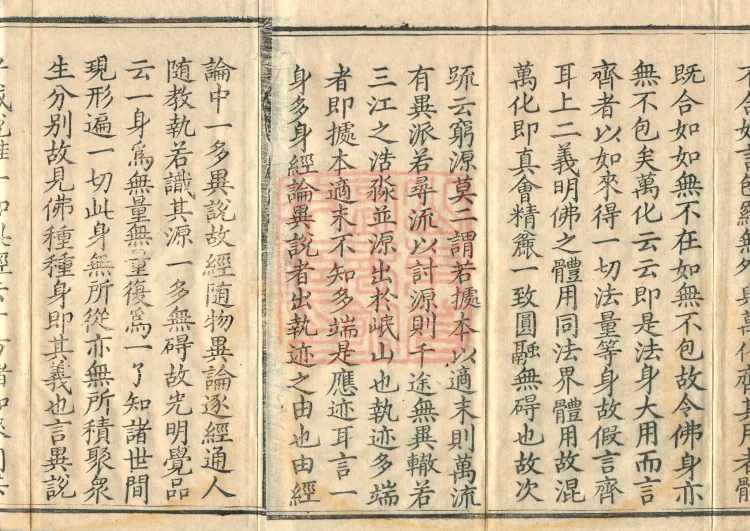 既合如如無不在如無不包故令佛身亦
無不包矣萬化云云即是法身大用而言
齊者以如來得一切法量等身故假言齊
耳上二義明佛之體用同法界體用故混
萬化即真會精麁一致圓融無碍也故次
䟽云窮源莫二謂若㨿本以適末則萬流
有異派若尋流以討源則千途無異轍若
三江之浩淼並源出於岷山也執迹多端
者即㨿本適末不知多端是應迹耳言一
身多身經論異說者出執迹之由也由經
論中一多異說故經隨物異論逐經通人
隨教執若識其源一多無碍故光明覺品
云一身爲無量無量復爲一了知諸世間
現形遍一切此身無所從亦無所積聚衆
生分別故見佛種種身即其義也言異說